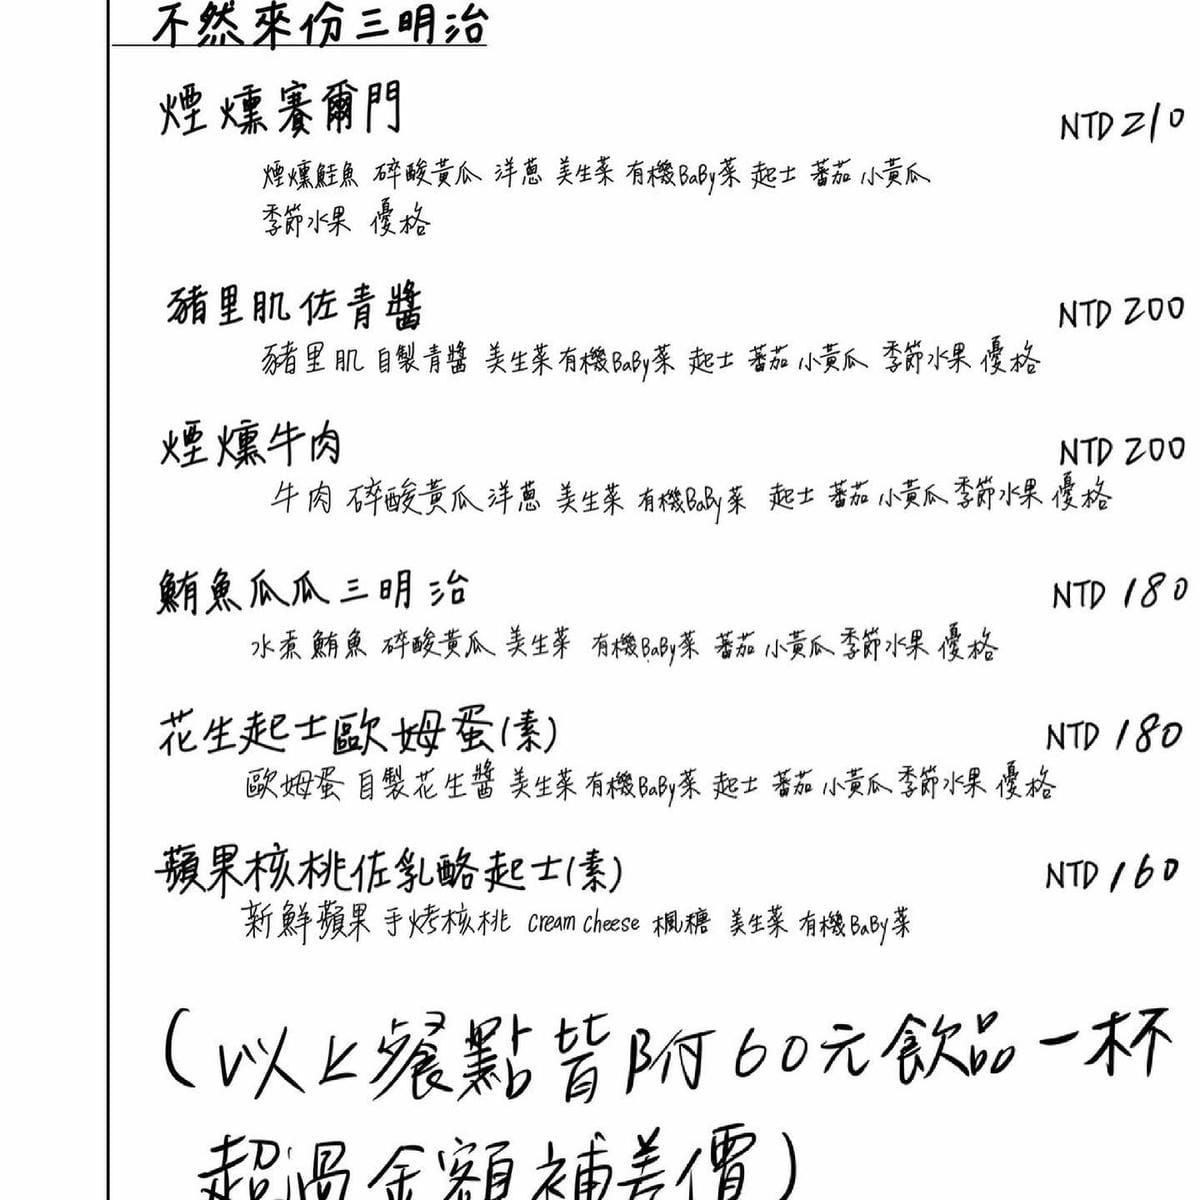 不然來份三明治
煙燻賽爾門 NTD 210
煙燻鮭魚 碎酸黃瓜 洋蔥 美生菜 有機BaBy菜 起士 蕃茄 小黃瓜
季節水果 優格
豬里肌佐青醬 NTD 200
豬里肌 自製青醬 美生菜 有機BaBy菜 起士 蕃茄 小黃瓜 季節水果 優格
煙燻牛肉 NTD 200
牛肉 碎酸黃瓜 洋蔥 美生菜 有機BaBy菜 起士 蕃茄 小黃瓜 季節水果 優格
鮪魚瓜瓜三明治 NTD 180
水煮鮪魚 碎酸黃瓜 美生菜 有機BaBy菜 蕃茄 小黃瓜 季節水果 優格
花生起士歐姆蛋(素) NTD 180
歐姆蛋 自製花生醬 美生菜 有機BaBy菜 起士 蕃茄 小黃瓜 季節水果 優格
蘋果核桃佐乳酪起士(素) NTD 160
新鮮蘋果 手烤核桃 cream cheese 楓糖 美生菜 有機BaBy菜
(以上餐點皆附60元飲品一杯
超過金額補差價)